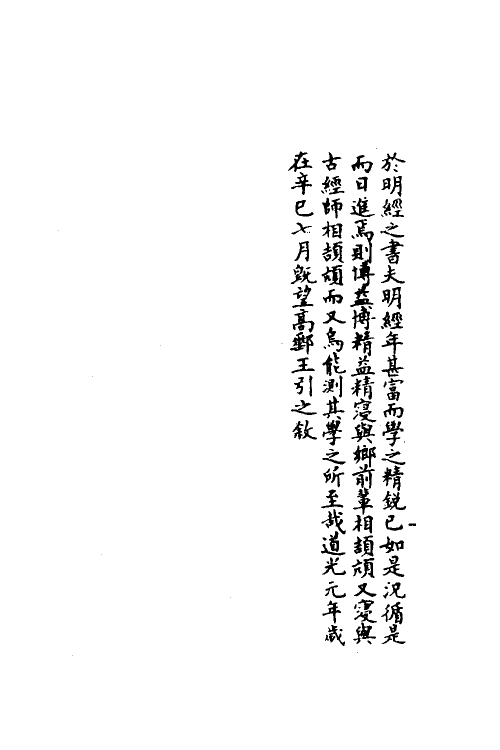 於明經之書夫明經年甚富而學之精銳已如是況循是
而日進焉則博益博精益精寖與鄉前輩相頡頏又寖與
古經師相頡頏而又烏能測其學之所至哉道光元年歲
在辛巳七月旣望高郵王引之敘